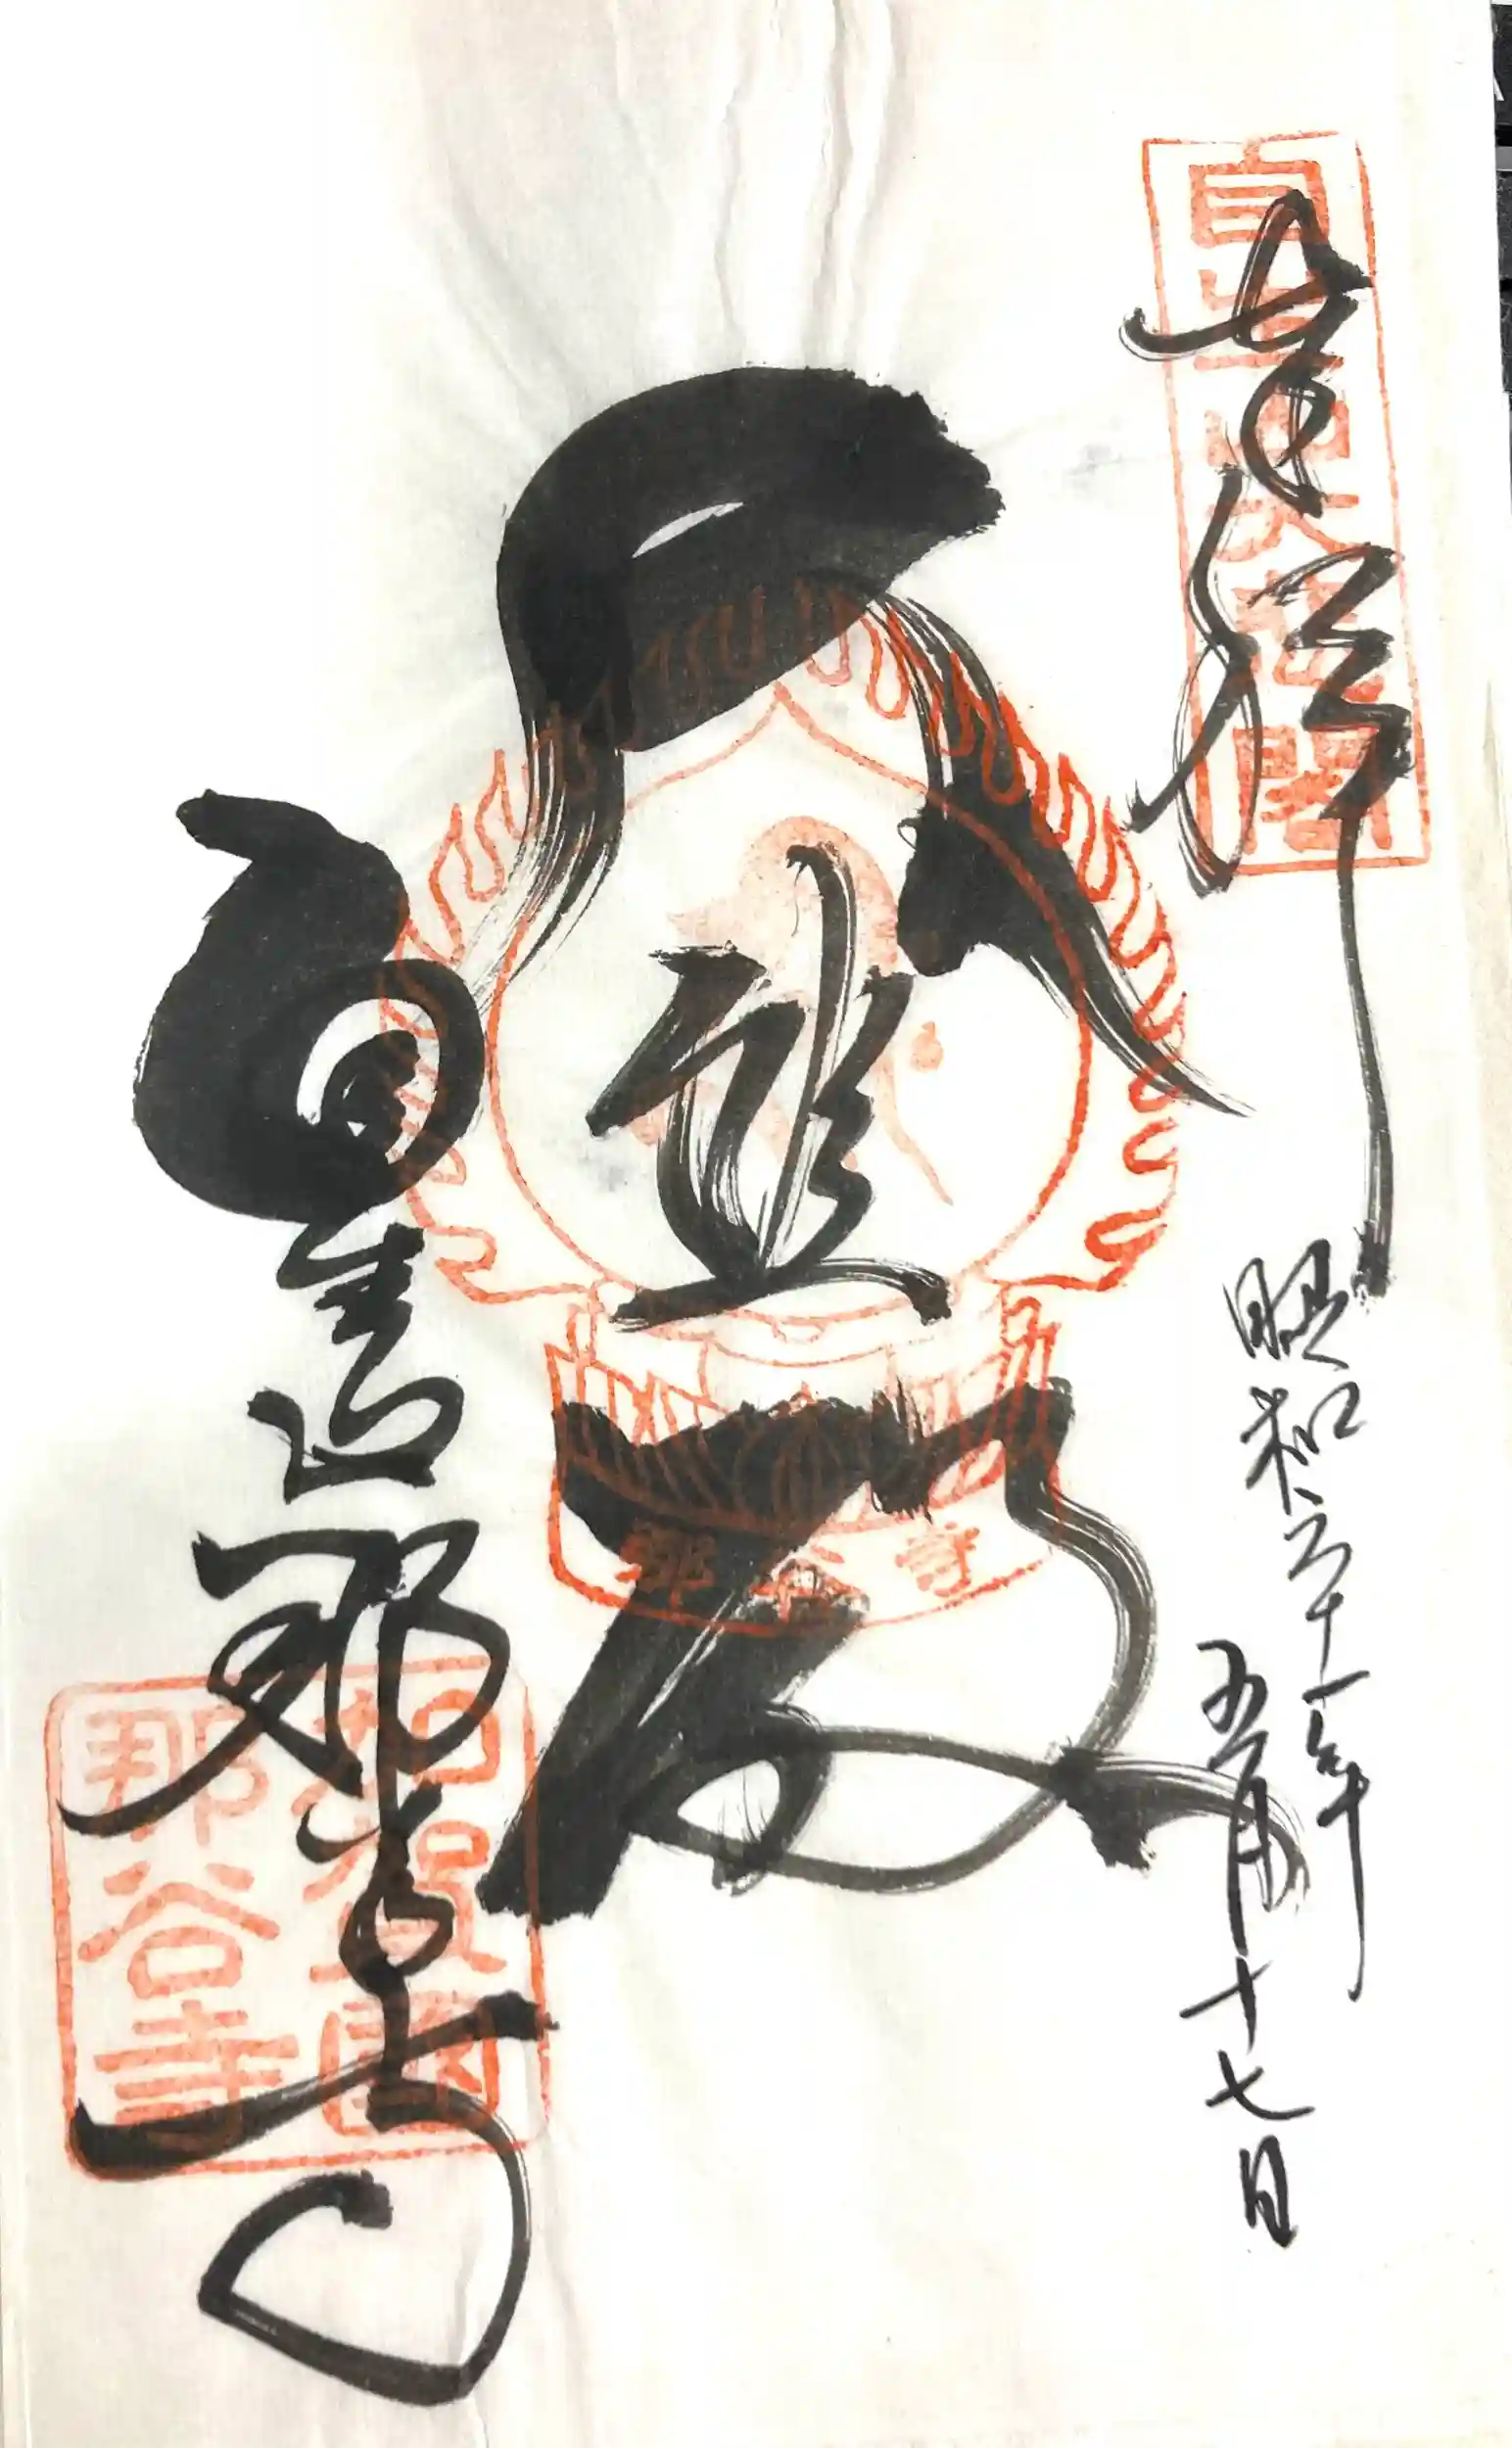 奉拝
昭和六十一年
五月十七日
自生山那谷寺
自生山大悲閣
那谷寺
加賀國
那谷寺